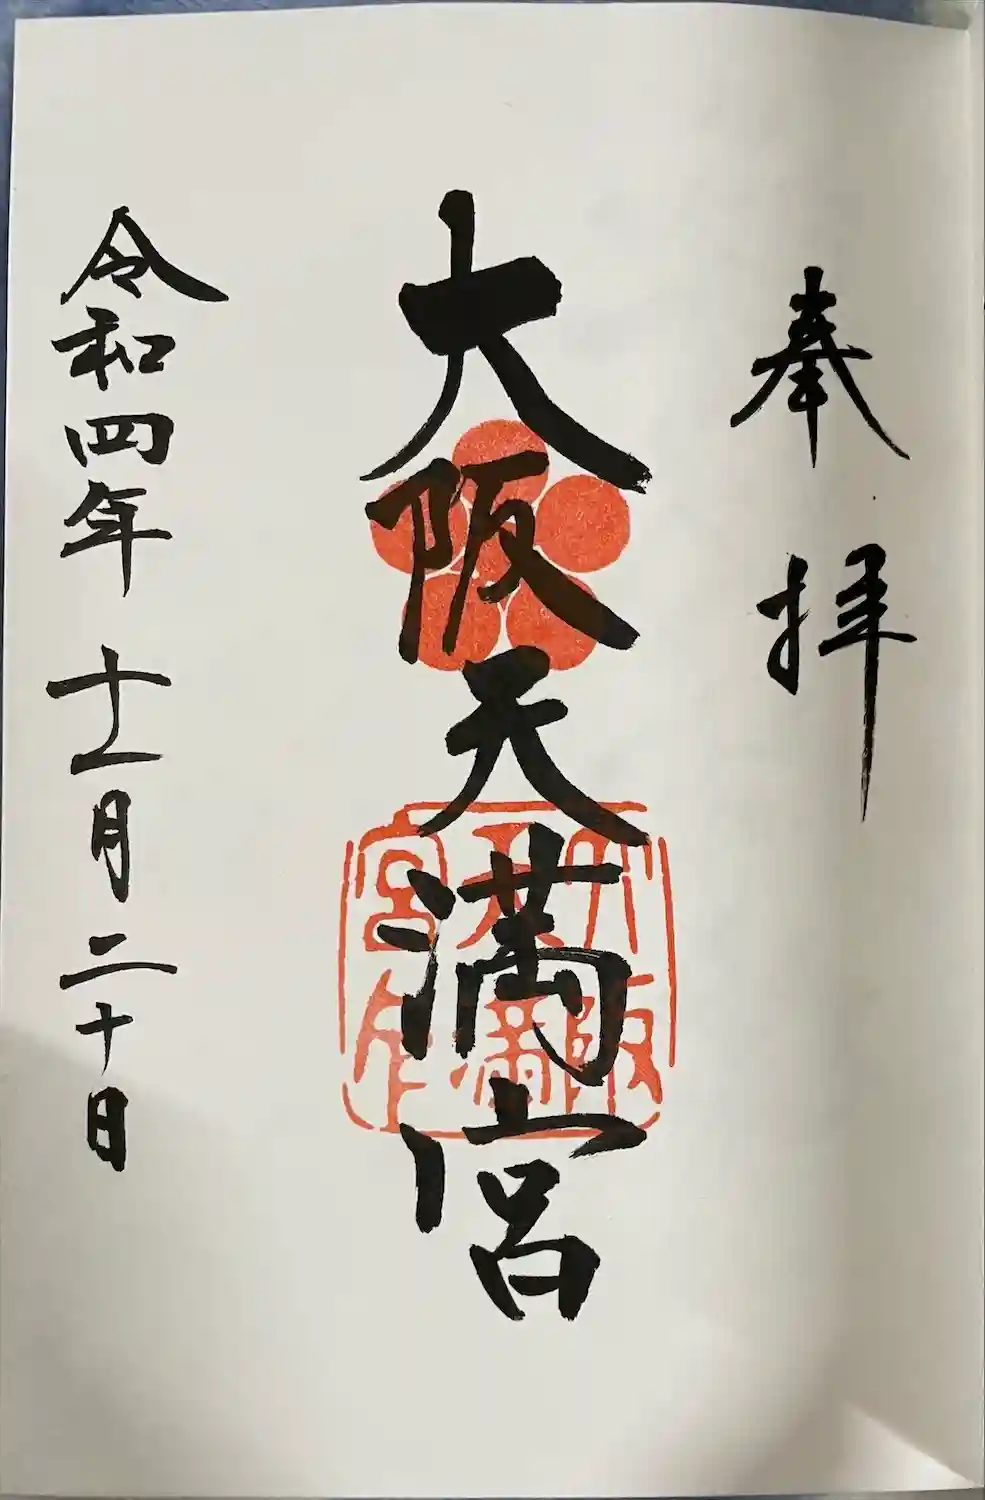 奉拝
大阪天満宮
大阪天満宮印
令和四年十一月二十日